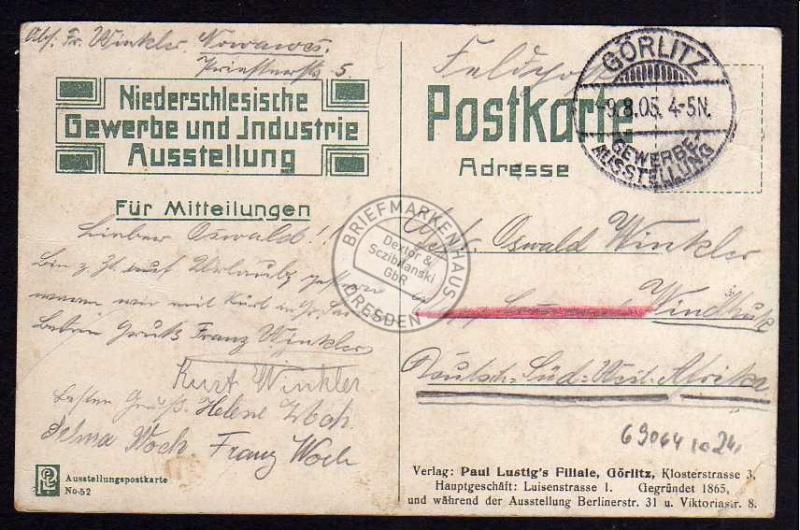 Abs. Fr. Winkler, Nowawes.
Priesterstr. 5.
Niederschlesische
Gewerbe und Industrie
Ausstellung
Für Mitteilungen
Lieber Oswald!
Bin z. Zt. auf Urlaub, gestern
waren wir mit Kurt in
Besten Gruß Franz Winkler
Kurt Winkler
Besten Gruß. Helene
Selma Woch Franz Woch
Ausstellungspostkarte
No. 52
Feldpost
Postkarte
Adresse
GÖRLITZ
9.8.05. 4-5N.
GEWERBE-
AUSSTELLUNG
Oswald Winkler
Windhuk
Deutsch-Süd-West-Afrika
69064
Verlag: Paul Lustig's Filiale, Görlitz, Klosterstrasse 3,
Hauptgeschäft: Luisenstrasse 1. Gegründet 1865,
und während der Ausstellung Berlinerstr. 31 u. Viktoriastr. 8.
BRIEFMARKENHAUS
Dextor &
Sczibilanski
GbR
DRESDEN